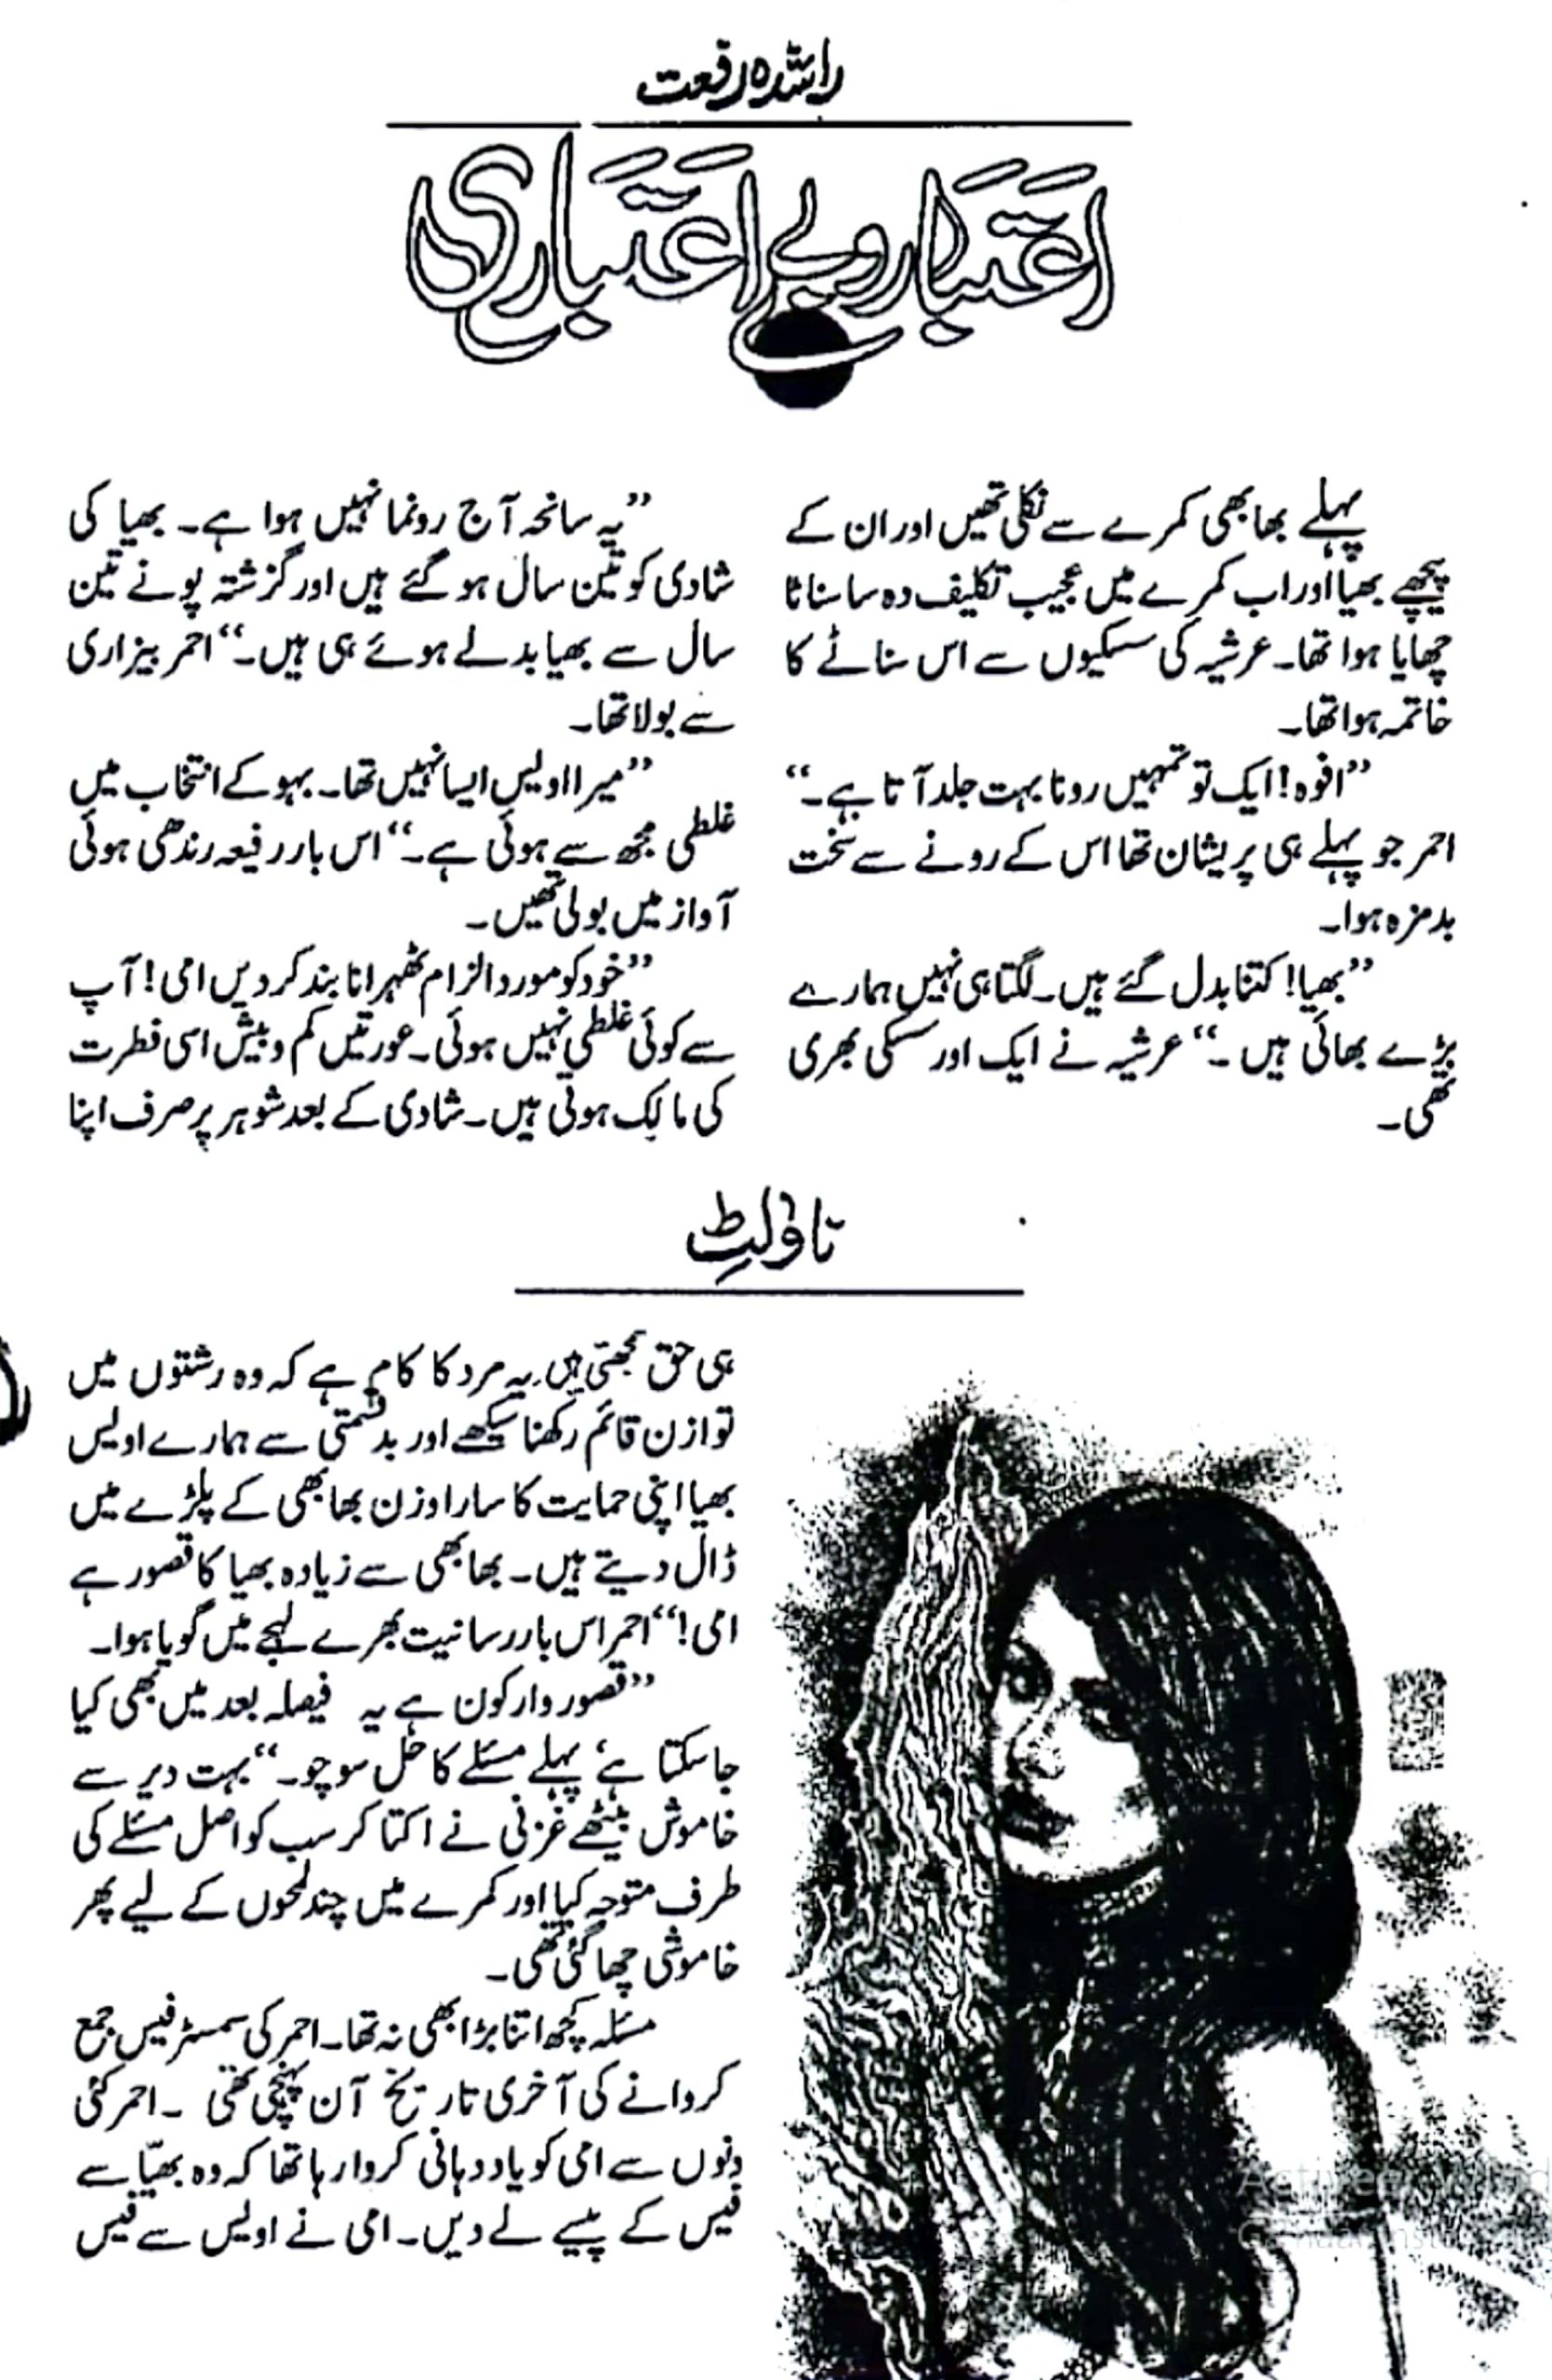 راشدہ رفعت
اعتبار و بے اعتباری
پہلے بھابھی کمرے سے نکلی تھیں اور ان کے
پیچھے بھیا اور اب کمرے میں عجیب تکلیف دہ سا سناٹا
چھایا ہوا تھا۔ عرشیہ کی سسکیوں سے اس سناٹے کا
خاتمہ ہوا تھا۔
”افوہ! ایک تو تمہیں رونا بہت جلد آتا ہے۔“
احمر جو پہلے ہی پریشان تھا اس کے رونے سے سخت
بدمزہ ہوا۔
”بھیا! کتنا بدل گئے ہیں۔ لگتا ہی نہیں ہمارے
بڑے بھائی ہیں۔“ عرشیہ نے ایک اور سسکی بھری
تھی۔
”یہ سانحہ آج رونما نہیں ہوا ہے۔ بھیا کی
شادی کو تین سال ہو گئے ہیں اور گزشتہ پونے تین
سال سے بھیا بدلے ہوئے ہی ہیں۔“ احمر بیزاری
سے بولا تھا۔
”میرا اویس ایسا نہیں تھا۔ بہو کے انتخاب میں
غلطی مجھ سے ہوئی ہے۔“ اس بار رفیعہ رندھی ہوئی
آواز میں بولی تھیں۔
”خود کو مورد الزام ٹھہرانا بند کر دیں امی! آپ
سے کوئی غلطی نہیں ہوئی۔ عورتیں کم و بیش اسی فطرت
کی مالک ہوتی ہیں۔ شادی کے بعد شوہر پر صرف اپنا
ناولٹ
ہی حق سمجھتی ہیں۔ یہ مرد کا کام ہے کہ وہ رشتوں میں
توازن قائم رکھنا سیکھے اور بدقسمتی سے ہمارے اویس
بھیا اپنی حمایت کا سارا وزن بھابھی کے پلڑے میں
ڈال دیتے ہیں۔ بھابھی سے زیادہ بھیا کا قصور ہے
امی!“ احمر اس بار رسانیت بھرے لہجے میں گویا ہوا۔
”قصور وار کون ہے یہ فیصلہ بعد میں بھی کیا
جاسکتا ہے، پہلے مسئلے کا حل سوچو۔“ بہت دیر سے
خاموش بیٹھے غزنی نے اکتا کر سب کو اصل مسئلے کی
طرف متوجہ کیا اور کمرے میں چند لمحوں کے لیے پھر
خاموشی چھا گئی تھی۔
مسئلہ کچھ اتنا بڑا بھی نہ تھا۔ احمر کی سمسٹر فیس جمع
کروانے کی آخری تاریخ آن پہنچی تھی۔ احمر کئی
دنوں سے امی کو یاد دہانی کروا رہا تھا کہ وہ بھیّا سے
فیس کے پیسے لے دیں۔ امی نے اویس سے فیس